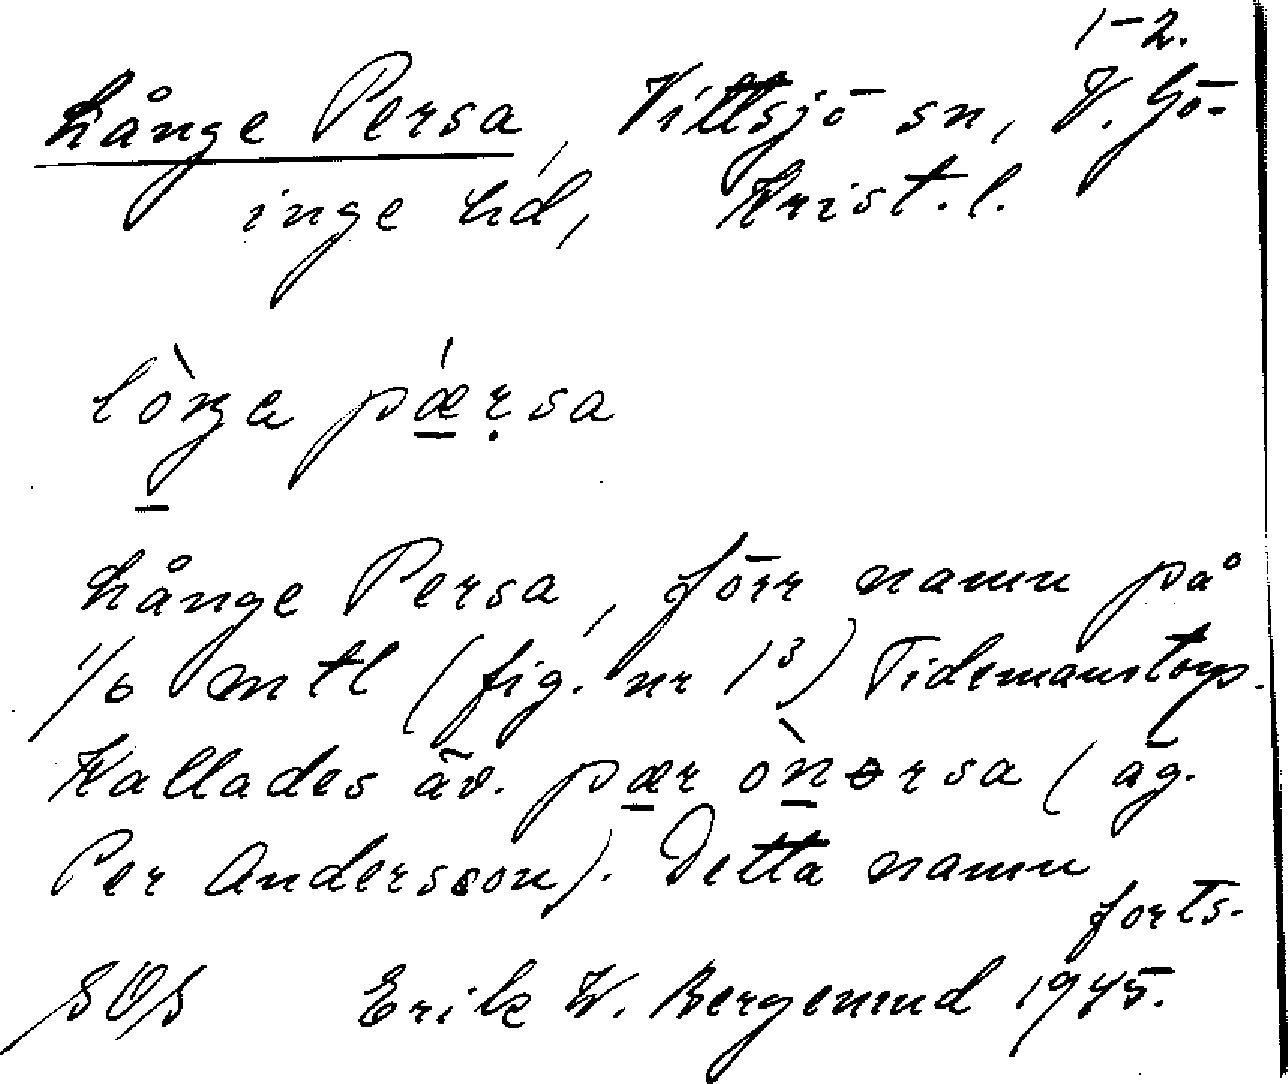 1-2.
Långe Persa, Vittsjö sn, V. Gö-
inge hd, Krist. l.
lòŋa pǽrsa
Långe Persa, förr namn på
1/6 mtl (fig. nr 1³) Tidemanstorp.
Kallades äv. pær ònərsa (äg.
Per Andersson). Detta namn
forts.
SOS Erik W. Bergemud 1945.